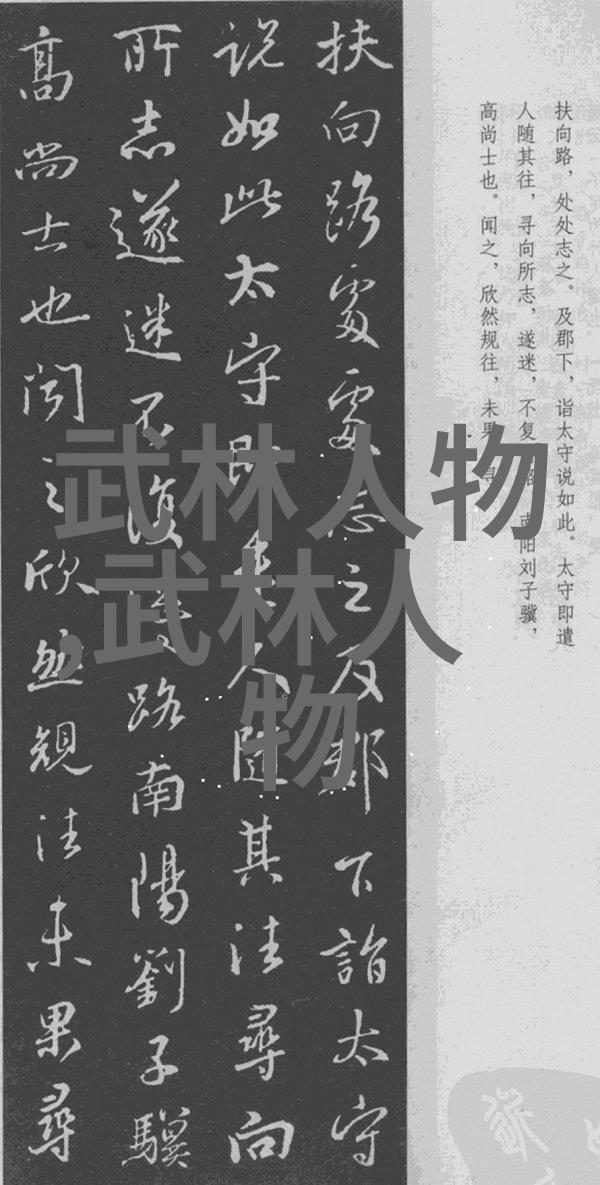 扶向路處處志之及郡下詣太守
说如此太守即遣人隨其往尋向
所志遂迷不復得路南陽劉子驥
高尚士也闻之欣然規往未果尋
扶向路，处处志之。及郡下，诣太守说如此。太守即遣
人随其往，寻向所志，遂迷，不复 南阳刘子骥，
高尚士也。闻之，欣然规往，未果 寻
武林人物
,武林人
物